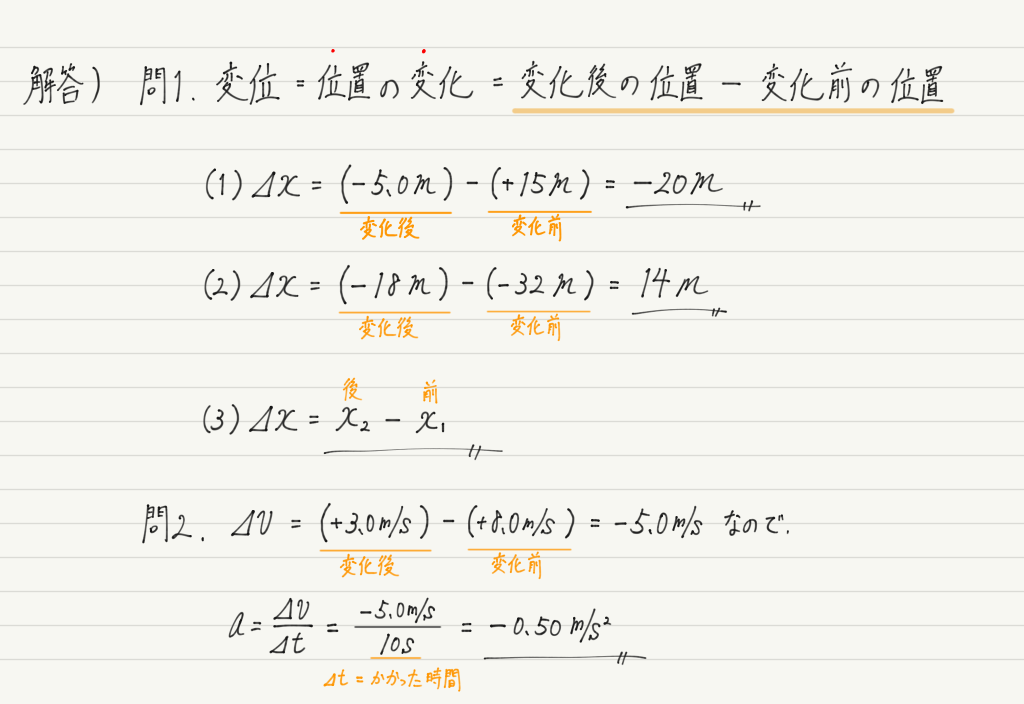 解答) 問1. 変位 = 位置の変化 = 変化後の位置 − 変化前の位置
(1) Δx = (−5.0m) − (+15m) = −20m
変化後 変化前
(2) Δx = (−18m) − (−32m) = 14m
変化後 変化前
後 前
(3) Δx = x₂ − x₁
問2. Δv = (+3.0m/s) − (+8.0m/s) = −5.0m/s なので.
変化後 変化前
a = Δv/Δt = −5.0m/s/10s = −0.50 m/s²
Δt = かかった時間